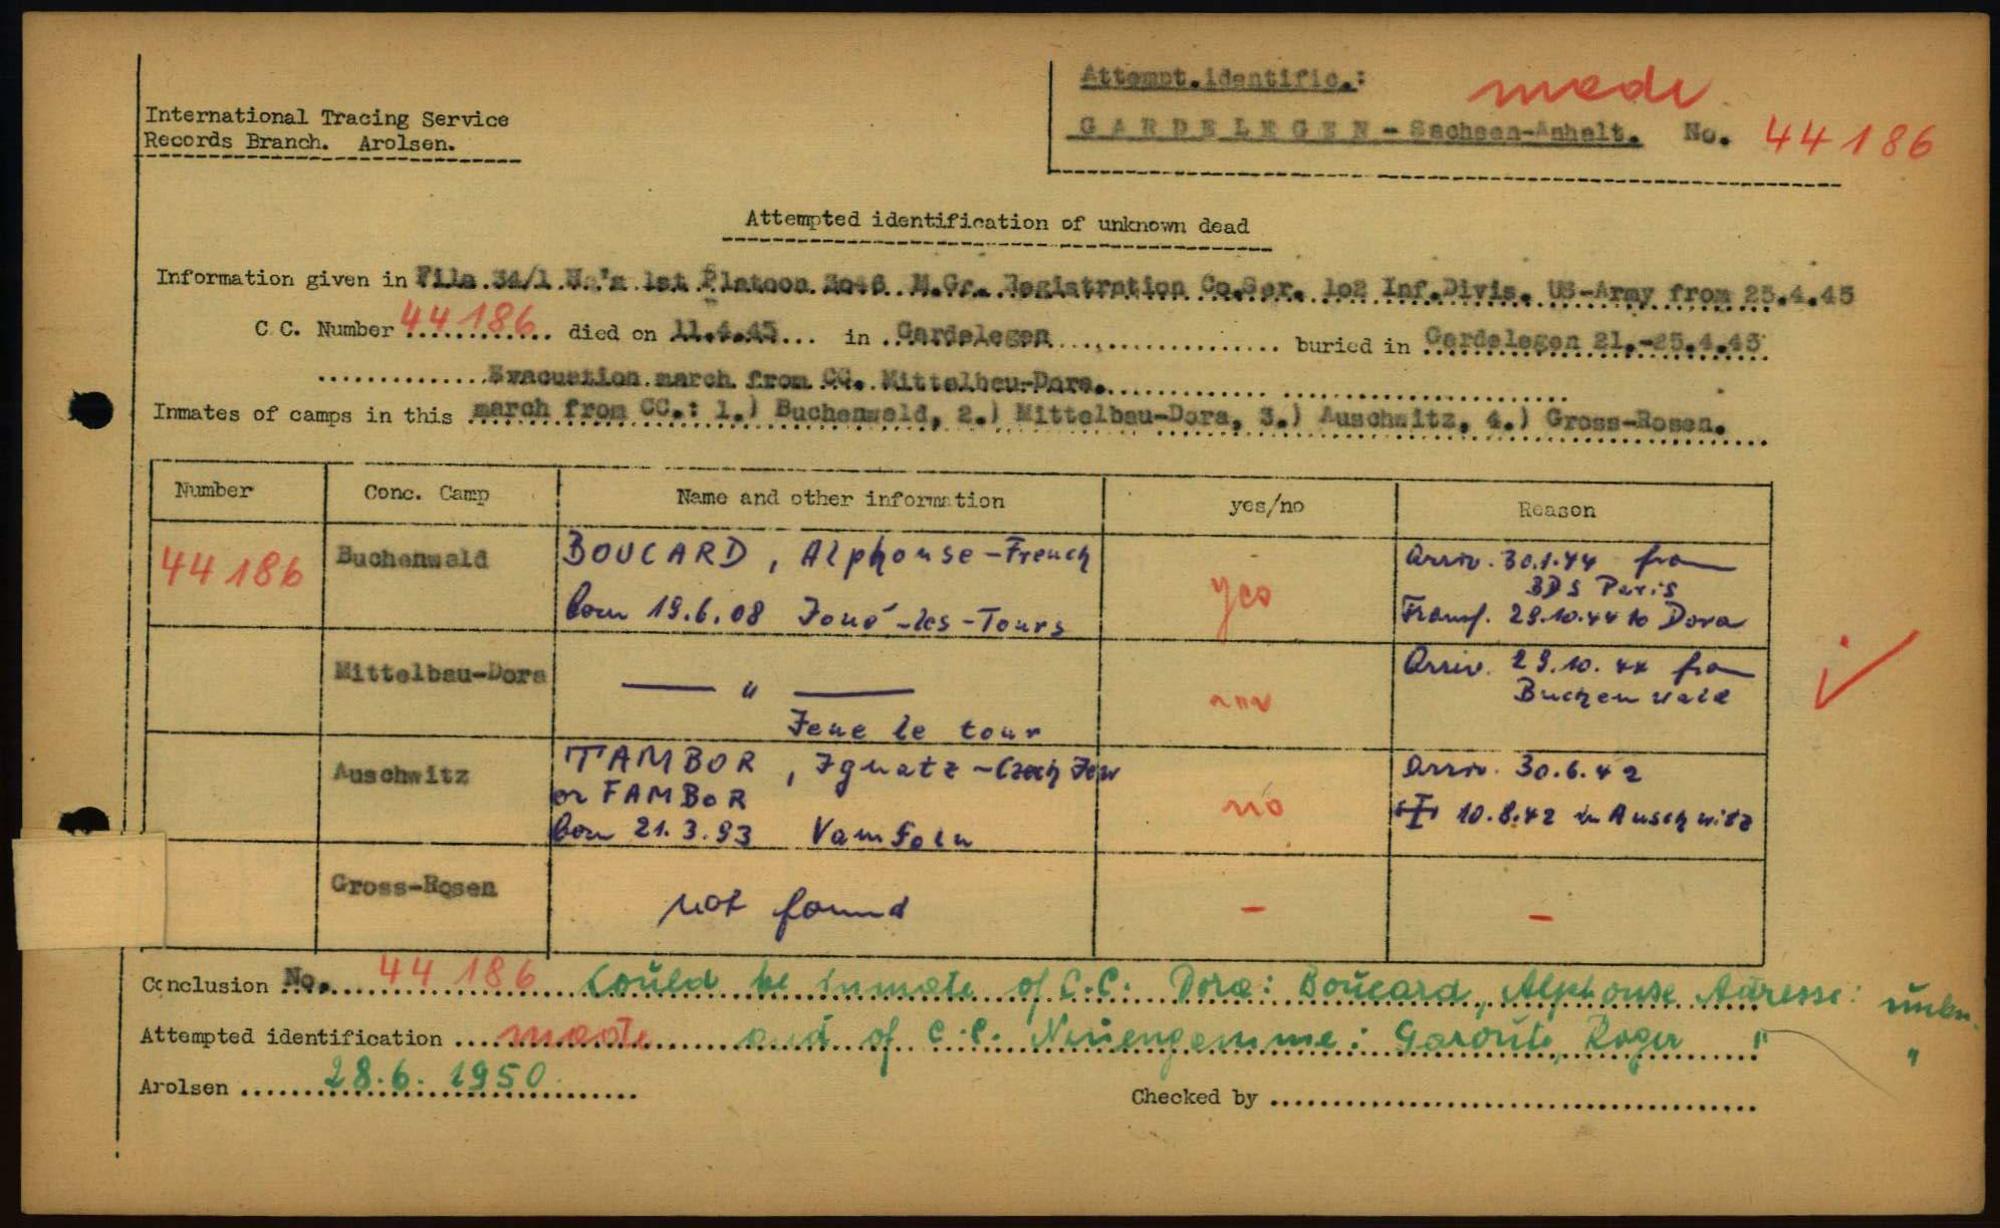 Attempt.identific.: made
International Tracing Service
Records Branch. Arolsen.
GARDELEGEN - Sachsen-Anhalt. No. 44186
Attempted identification of unknown dead
Information given in File 34/1 1st Platoon 3046 M.Gr. Registration Co.Ser. 102 Inf.Divis. US-Army from 25.4.45
C.C. Number 44186 died on 11.4.45 in Gardelegen buried in Gardelegen 21.-25.4.45
Evacuation march from CC. Mittelbau-Dora.
Inmates of camps in this march from CC.: 1.) Buchenwald, 2.) Mittelbau-Dora, 3.) Auschwitz, 4.) Gross-Rosen.
Number Conc. Camp Name and other information yes/no Reason
44186 Buchenwald BOUCARD, Alphonse - French yes Arriv. 30.1.44 from
BDS Paris
born 19.6.08 Joué-les-Tours Transf. 29.10.44 to Dora
Mittelbau-Dora — " — Arriv. 29.10.44 from
Buchenwald
Jeue le tour
Auschwitz TAMBOR, Ignatz - Czech Jew no Arriv. 30.6.42
or FAMBOR
born 21.3.93 10.8.42 in Auschwitz
Gross-Rosen not found - -
Conclusion No. 44186 Could be inmate of C.C. Dora: Boucard, Alphonse Adresse: unkn.
Attempted identification made and of C.C. Neuengamme: Garoute, Roger " "
Arolsen 28.6.1950
Checked by